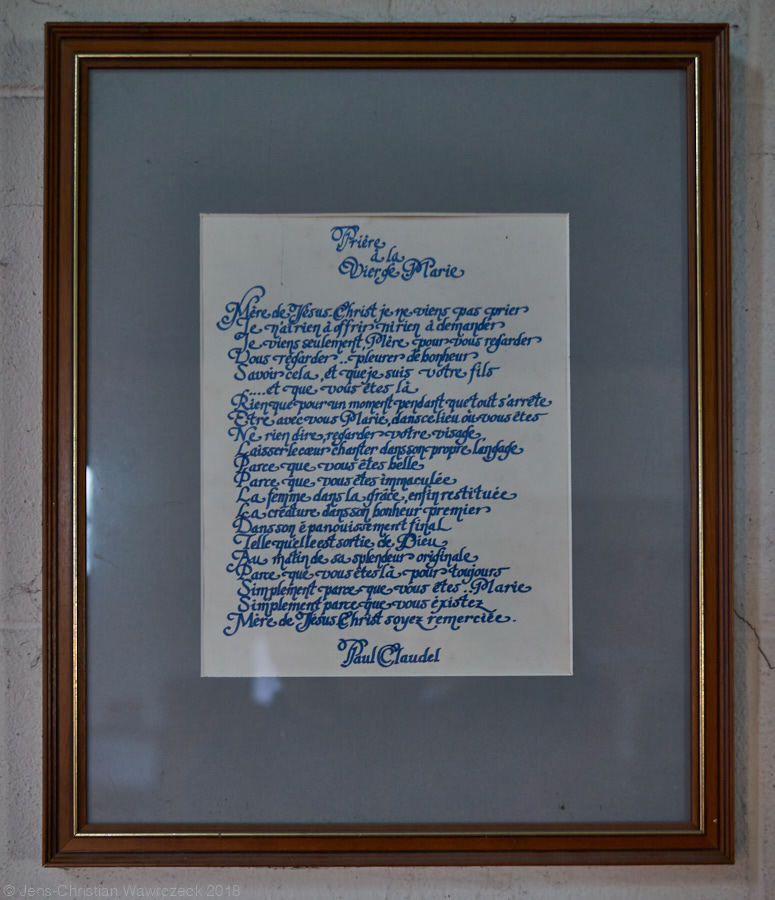 Prière
à la
Vierge Marie
Mère de Jésus-Christ je ne viens pas prier
Je n'ai rien à offrir ni rien à demander
Je viens seulement, Mère pour vous regarder
Vous regarder... pleurer de bonheur
Savoir cela, et que je suis votre fils
....et que vous êtes là
Rien que pour un moment pendant que tout s'arrête
Etre avec vous Marie, dans ce lieu où vous êtes
Ne rien dire, regarder votre visage,
Laisser le cœur chanter dans son propre langage
Parce que vous êtes belle
Parce que vous êtes immaculée
La femme dans la grâce, enfin restituée
La créature dans son bonheur premier
Dans son épanouissement final
Telle qu'elle est sortie de Dieu
Au matin de sa splendeur originale
Parce que vous êtes là pour toujours
Simplement parce que vous êtes..Marie
Simplement parce que vous éxistez
Mère de Jésus Christ soyez remerciée.
Paul Claudel
© Jens-Christian Wawrczeck 2018